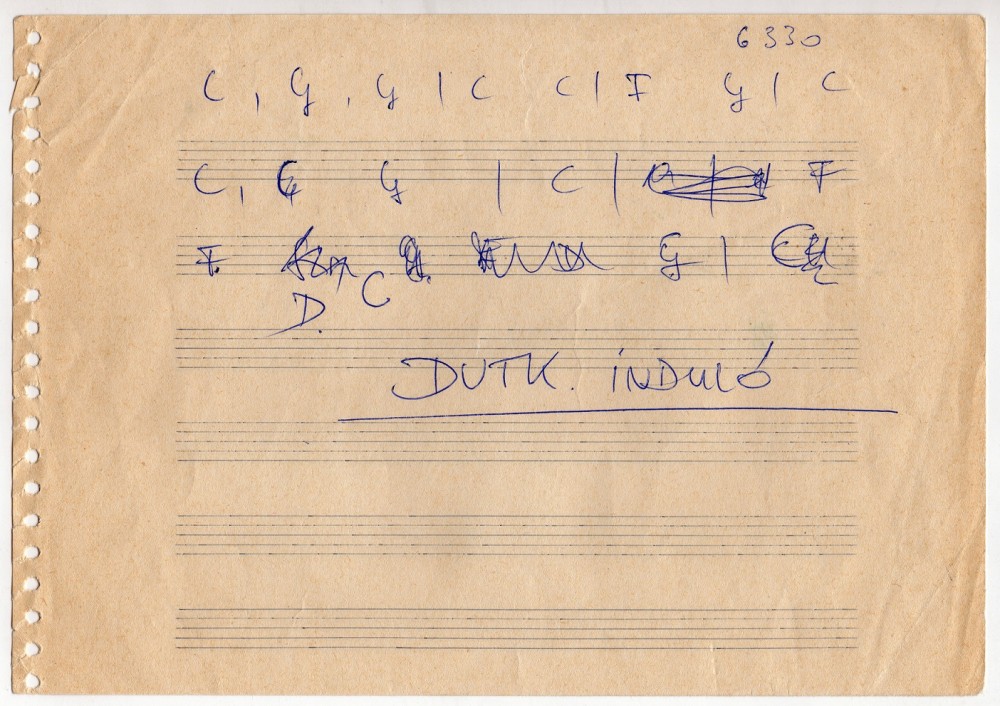 6330
C, G, G | C C | F G | C
C, G G | C | F
F. G |
D. C
DUTK. INDULÓ